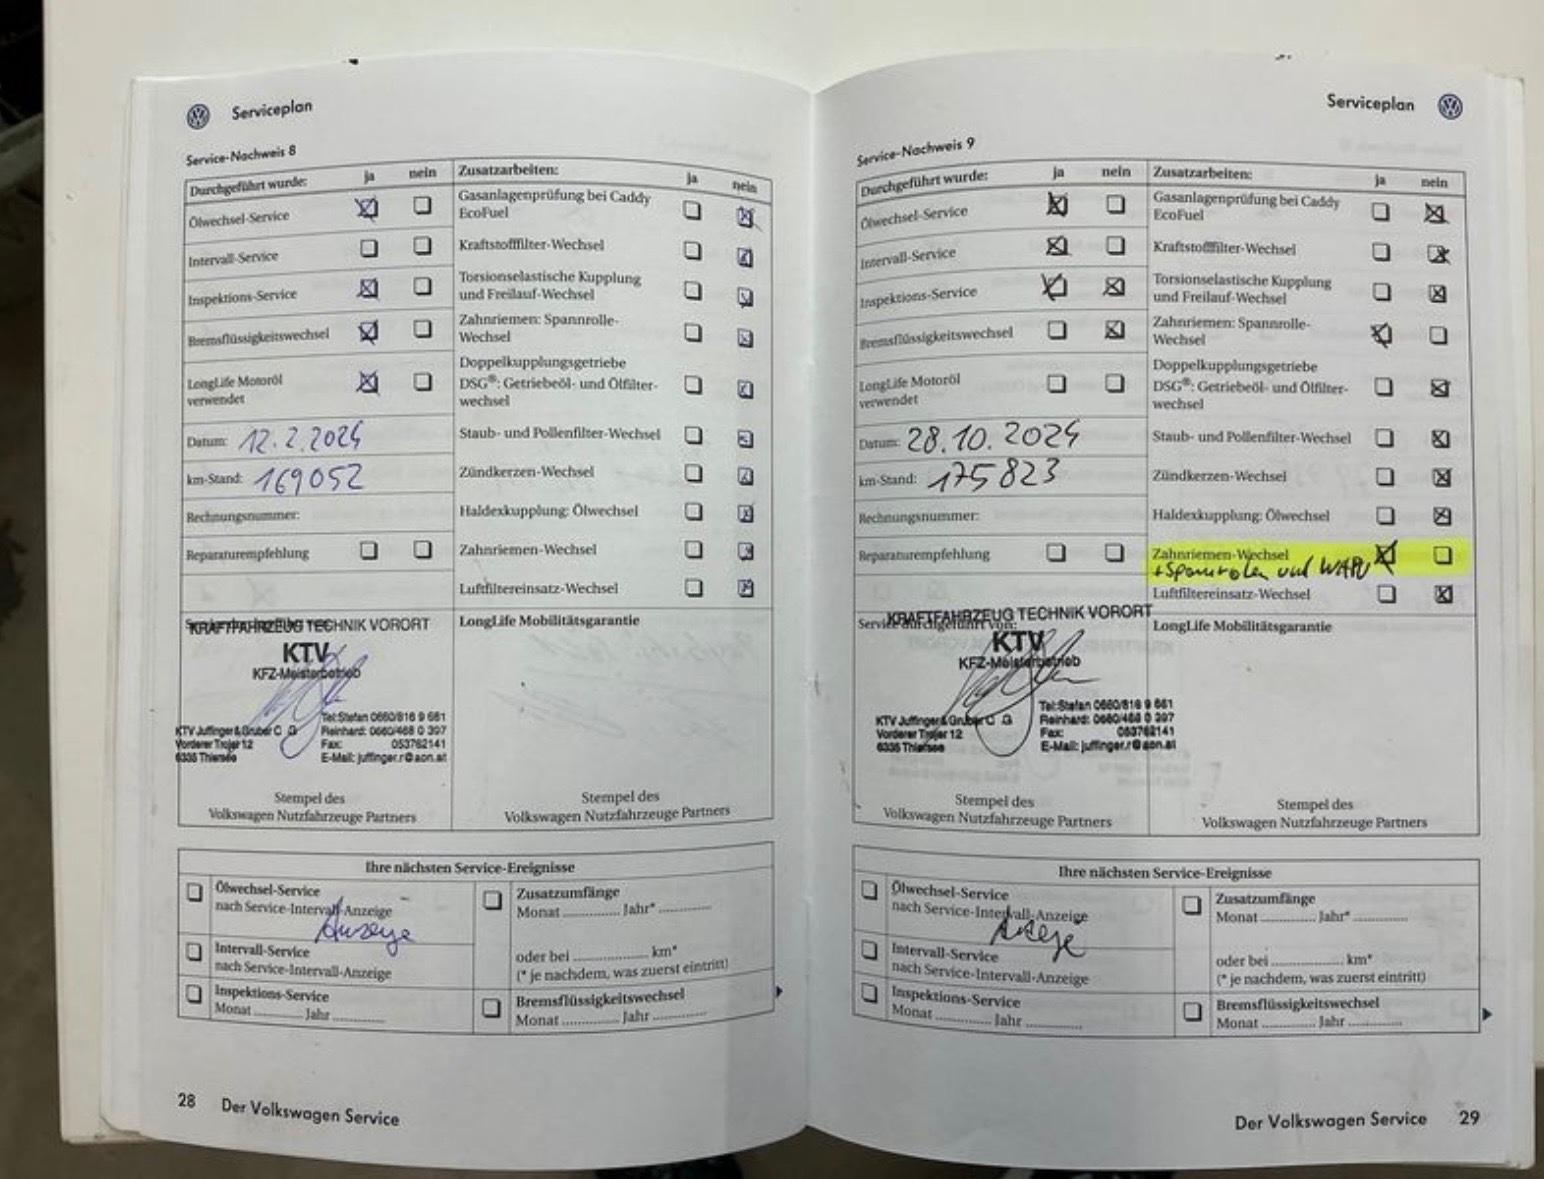 Serviceplan
Service-Nachweis 8
Durchgeführt wurde: ja nein
Ölwechsel-Service
Intervall-Service
Inspektions-Service
Bremsflüssigkeitswechsel
LongLife Motoröl
verwendet
Datum: 12.2.2024
km-Stand: 169052
Rechnungsnummer:
Reparaturempfehlung
KRAFTFAHRZEUG TECHNIK VORORT
KTV
KFZ-Meisterbetrieb
KTV Juffinger & Gruber O G
Vorderer Trojer 12
6335 Thiersee
Tel: Stefan 0660/816 9 661
Reinhard: 0660/468 0 397
Fax: 053762141
E-Mail: juffinger.r@aon.at
Stempel des
Volkswagen Nutzfahrzeuge Partners
Zusatzarbeiten: ja nein
Gasanlagenprüfung bei Caddy
EcoFuel
Kraftstofffilter-Wechsel
Torsionselastische Kupplung
und Freilauf-Wechsel
Zahnriemen: Spannrolle-
Wechsel
Doppelkupplungsgetriebe
DSG®: Getriebeöl- und Ölfilter-
wechsel
Staub- und Pollenfilter-Wechsel
Zündkerzen-Wechsel
Haldexkupplung: Ölwechsel
Zahnriemen-Wechsel
Luftfiltereinsatz-Wechsel
LongLife Mobilitätsgarantie
Stempel des
Volkswagen Nutzfahrzeuge Partners
Ihre nächsten Service-Ereignisse
Ölwechsel-Service
nach Service-Intervall-Anzeige
Anzeige
Intervall-Service
nach Service-Intervall-Anzeige
Inspektions-Service
Monat ............ Jahr ............
Zusatzumfänge
Monat ............ Jahr* ............
oder bei ................ km*
(* je nachdem, was zuerst eintritt)
Bremsflüssigkeitswechsel
Monat ............ Jahr ............
28 Der Volkswagen Service
Serviceplan
Service-Nachweis 9
Durchgeführt wurde: ja nein
Ölwechsel-Service
Intervall-Service
Inspektions-Service
Bremsflüssigkeitswechsel
LongLife Motoröl
verwendet
Datum: 28.10.2024
km-Stand: 175823
Rechnungsnummer:
Reparaturempfehlung
Service durchgeführt von:
KRAFTFAHRZEUG TECHNIK VORORT
KTV
KFZ-Meisterbetrieb
KTV Juffinger & Gruber O G
Vorderer Trojer 12
6335 Thiersee
Tel: Stefan 0660/816 9 661
Reinhard: 0660/468 0 397
Fax: 053762141
E-Mail: juffinger.r@aon.at
Stempel des
Volkswagen Nutzfahrzeuge Partners
Zusatzarbeiten: ja nein
Gasanlagenprüfung bei Caddy
EcoFuel
Kraftstofffilter-Wechsel
Torsionselastische Kupplung
und Freilauf-Wechsel
Zahnriemen: Spannrolle-
Wechsel
Doppelkupplungsgetriebe
DSG®: Getriebeöl- und Ölfilter-
wechsel
Staub- und Pollenfilter-Wechsel
Zündkerzen-Wechsel
Haldexkupplung: Ölwechsel
Zahnriemen-Wechsel
+ Spannrolen und WAPU
Luftfiltereinsatz-Wechsel
LongLife Mobilitätsgarantie
Stempel des
Volkswagen Nutzfahrzeuge Partners
Ihre nächsten Service-Ereignisse
Ölwechsel-Service
nach Service-Intervall-Anzeige
Intervall-Service
nach Service-Intervall-Anzeige
Inspektions-Service
Monat ............ Jahr ............
Zusatzumfänge
Monat ............ Jahr* ............
oder bei ................ km*
(* je nachdem, was zuerst eintritt)
Bremsflüssigkeitswechsel
Monat ............ Jahr ............
Der Volkswagen Service 29